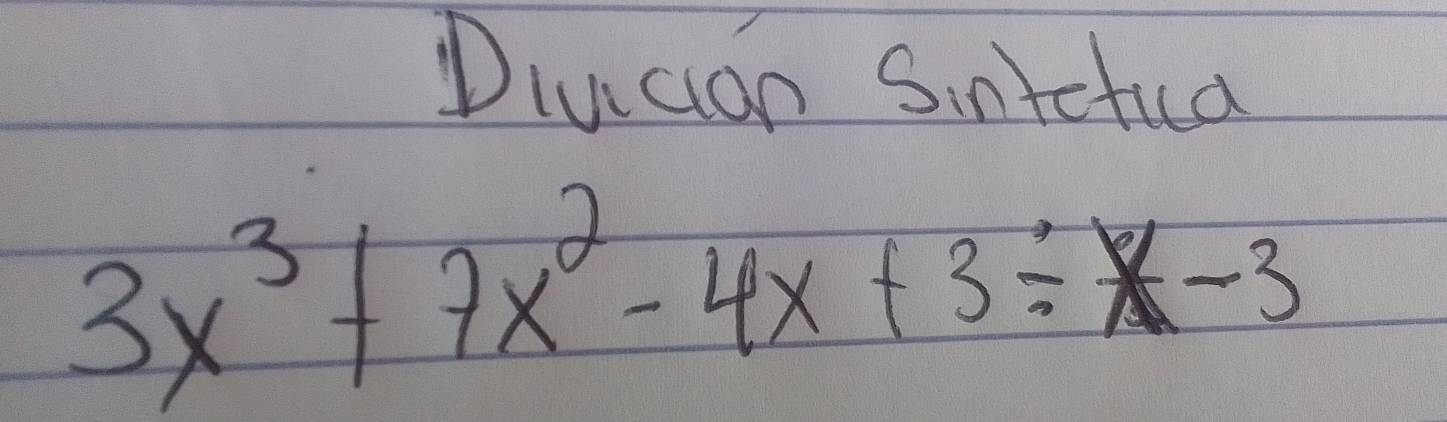 Divición Sintetica
3x³ + 7x² - 4x + 3 ÷ x - 3